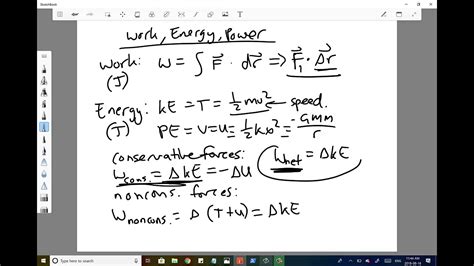 Work, Energy, Power
Work: W = ∫ F⃗ · dr⃗ ⇒ F⃗₁ · Δr⃗
(J)
Energy: KE = T = ½mv² ← speed.
(J) PE = V = U = ½kx² = -GMm/r
conservative forces: Wnet = ΔKE
Wcons. = ΔKE = -ΔU
noncons. forces:
Wnoncons. = Δ(T+U) = ΔKE
11:46 AM
2018-08-16